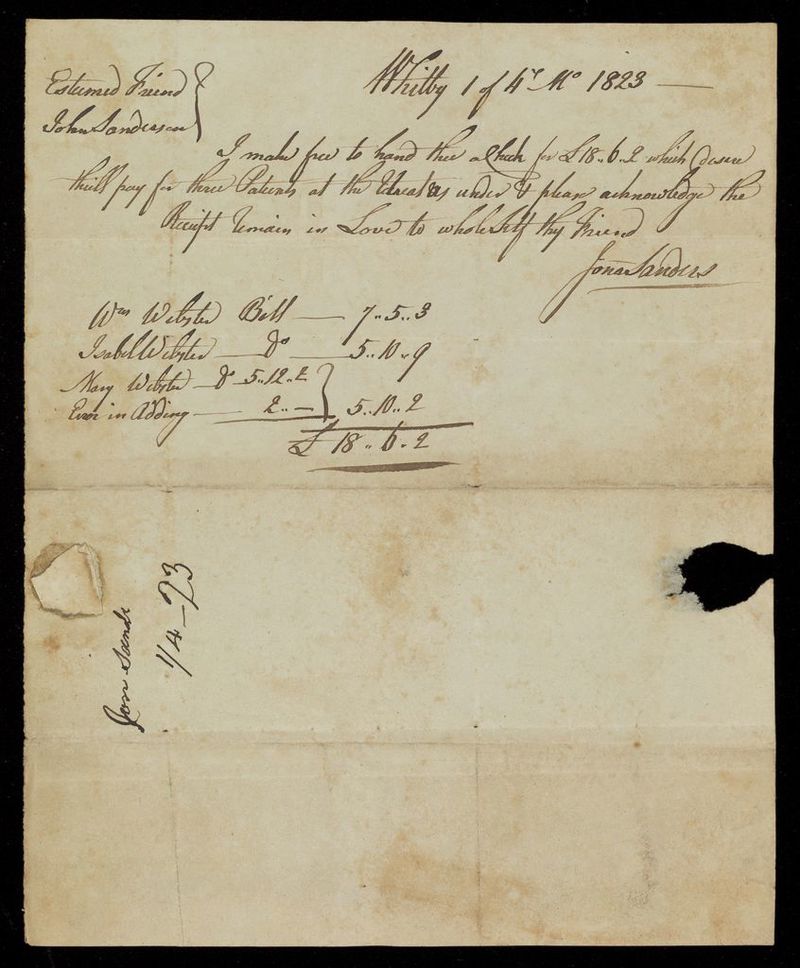 Esteemed Friend
John Sanderson
Whitby 1 of 4th Mo 1823
I make free to hand thee a Check for £18..6..2 which desire
theill pay for three Patients at the Retreat as under & please acknowledge the
Receipt Remain in Love to whole Self thy Friend
Jona Sanders
Wm Webster Bill — 7..5..3
Isabel Webster — Do — 5..10..9
Mary Webster — Do 5..12..2
Error in Adding — 2..— } 5..10..2
£ 18..6..2
Jon Sands
1/4–23